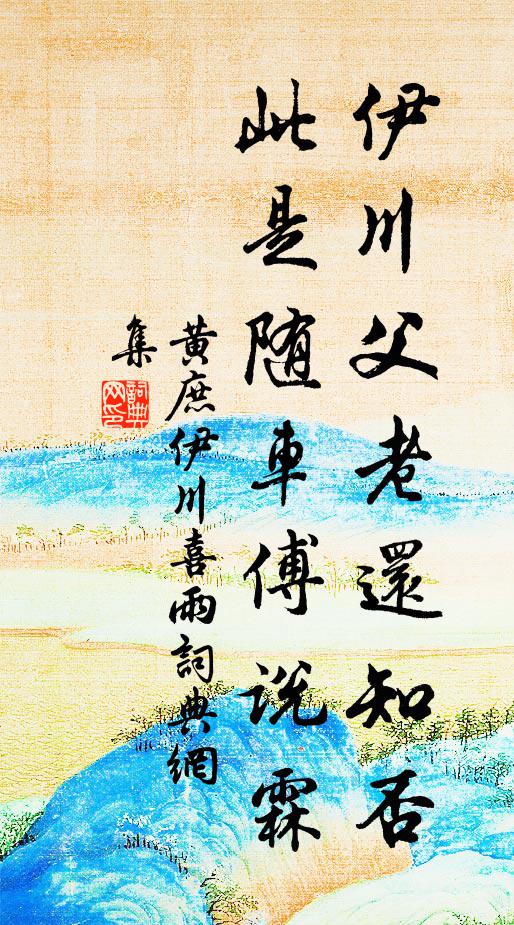 伊川父老還知否
此是随車傅说霖
黄庶伊川喜雨詞典網
集
詞典
网印